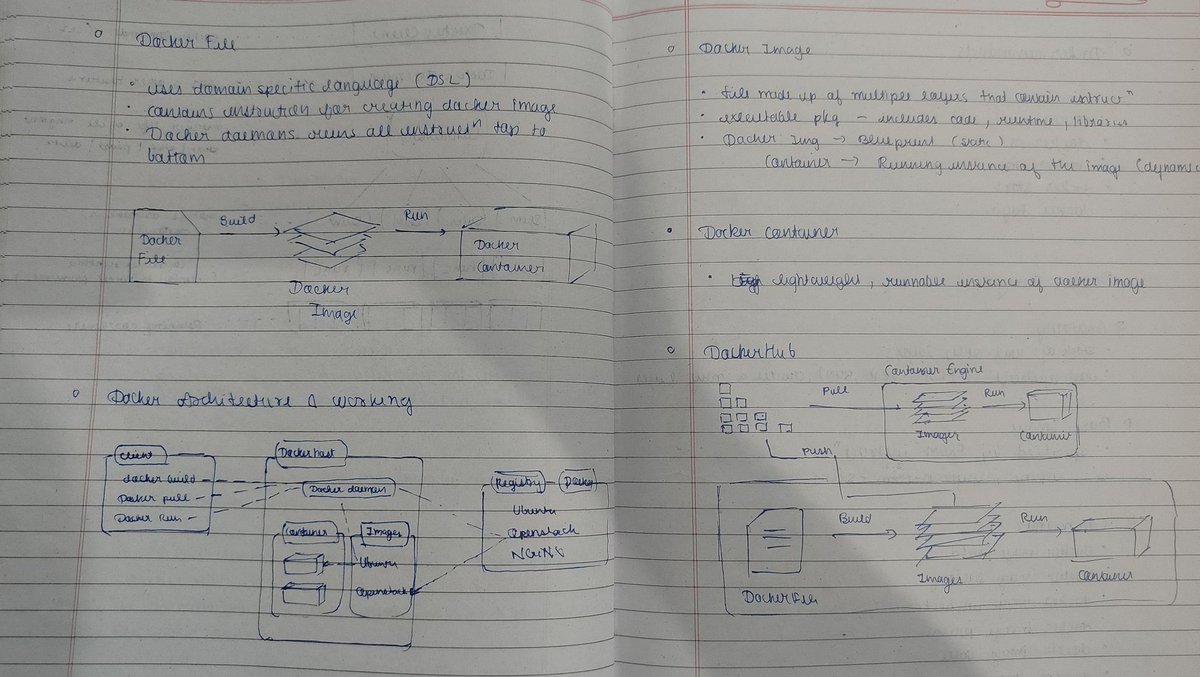 Docker File
• uses domain specific language (DSL)
• contains instruction for creating docker image
• Docker daemons runs all instrucⁿ top to
bottom
Docker
File
Build
Run
Docker
Container
Docker
Image
Docker Architecture & working
Client
docker build
Docker pull
Docker Run
Docker host
Docker daemon
Container
Images
Ubuntu
Openstack
Registry
Docker
Ubuntu
Openstack
NGINX
Docker Image
• file made up of multiple layers that contain instrucⁿ
• executable pkg – includes code, runtime, libraries
• Docker Img → Blueprint (static)
Container → Running instance of the image (dynamic
• Docker Container
• lightweight, runnable instance of docker image
DockerHub
Container Engine
Pull
Run
Images
Container
Push
Build
Run
Images
Container
DockerFile